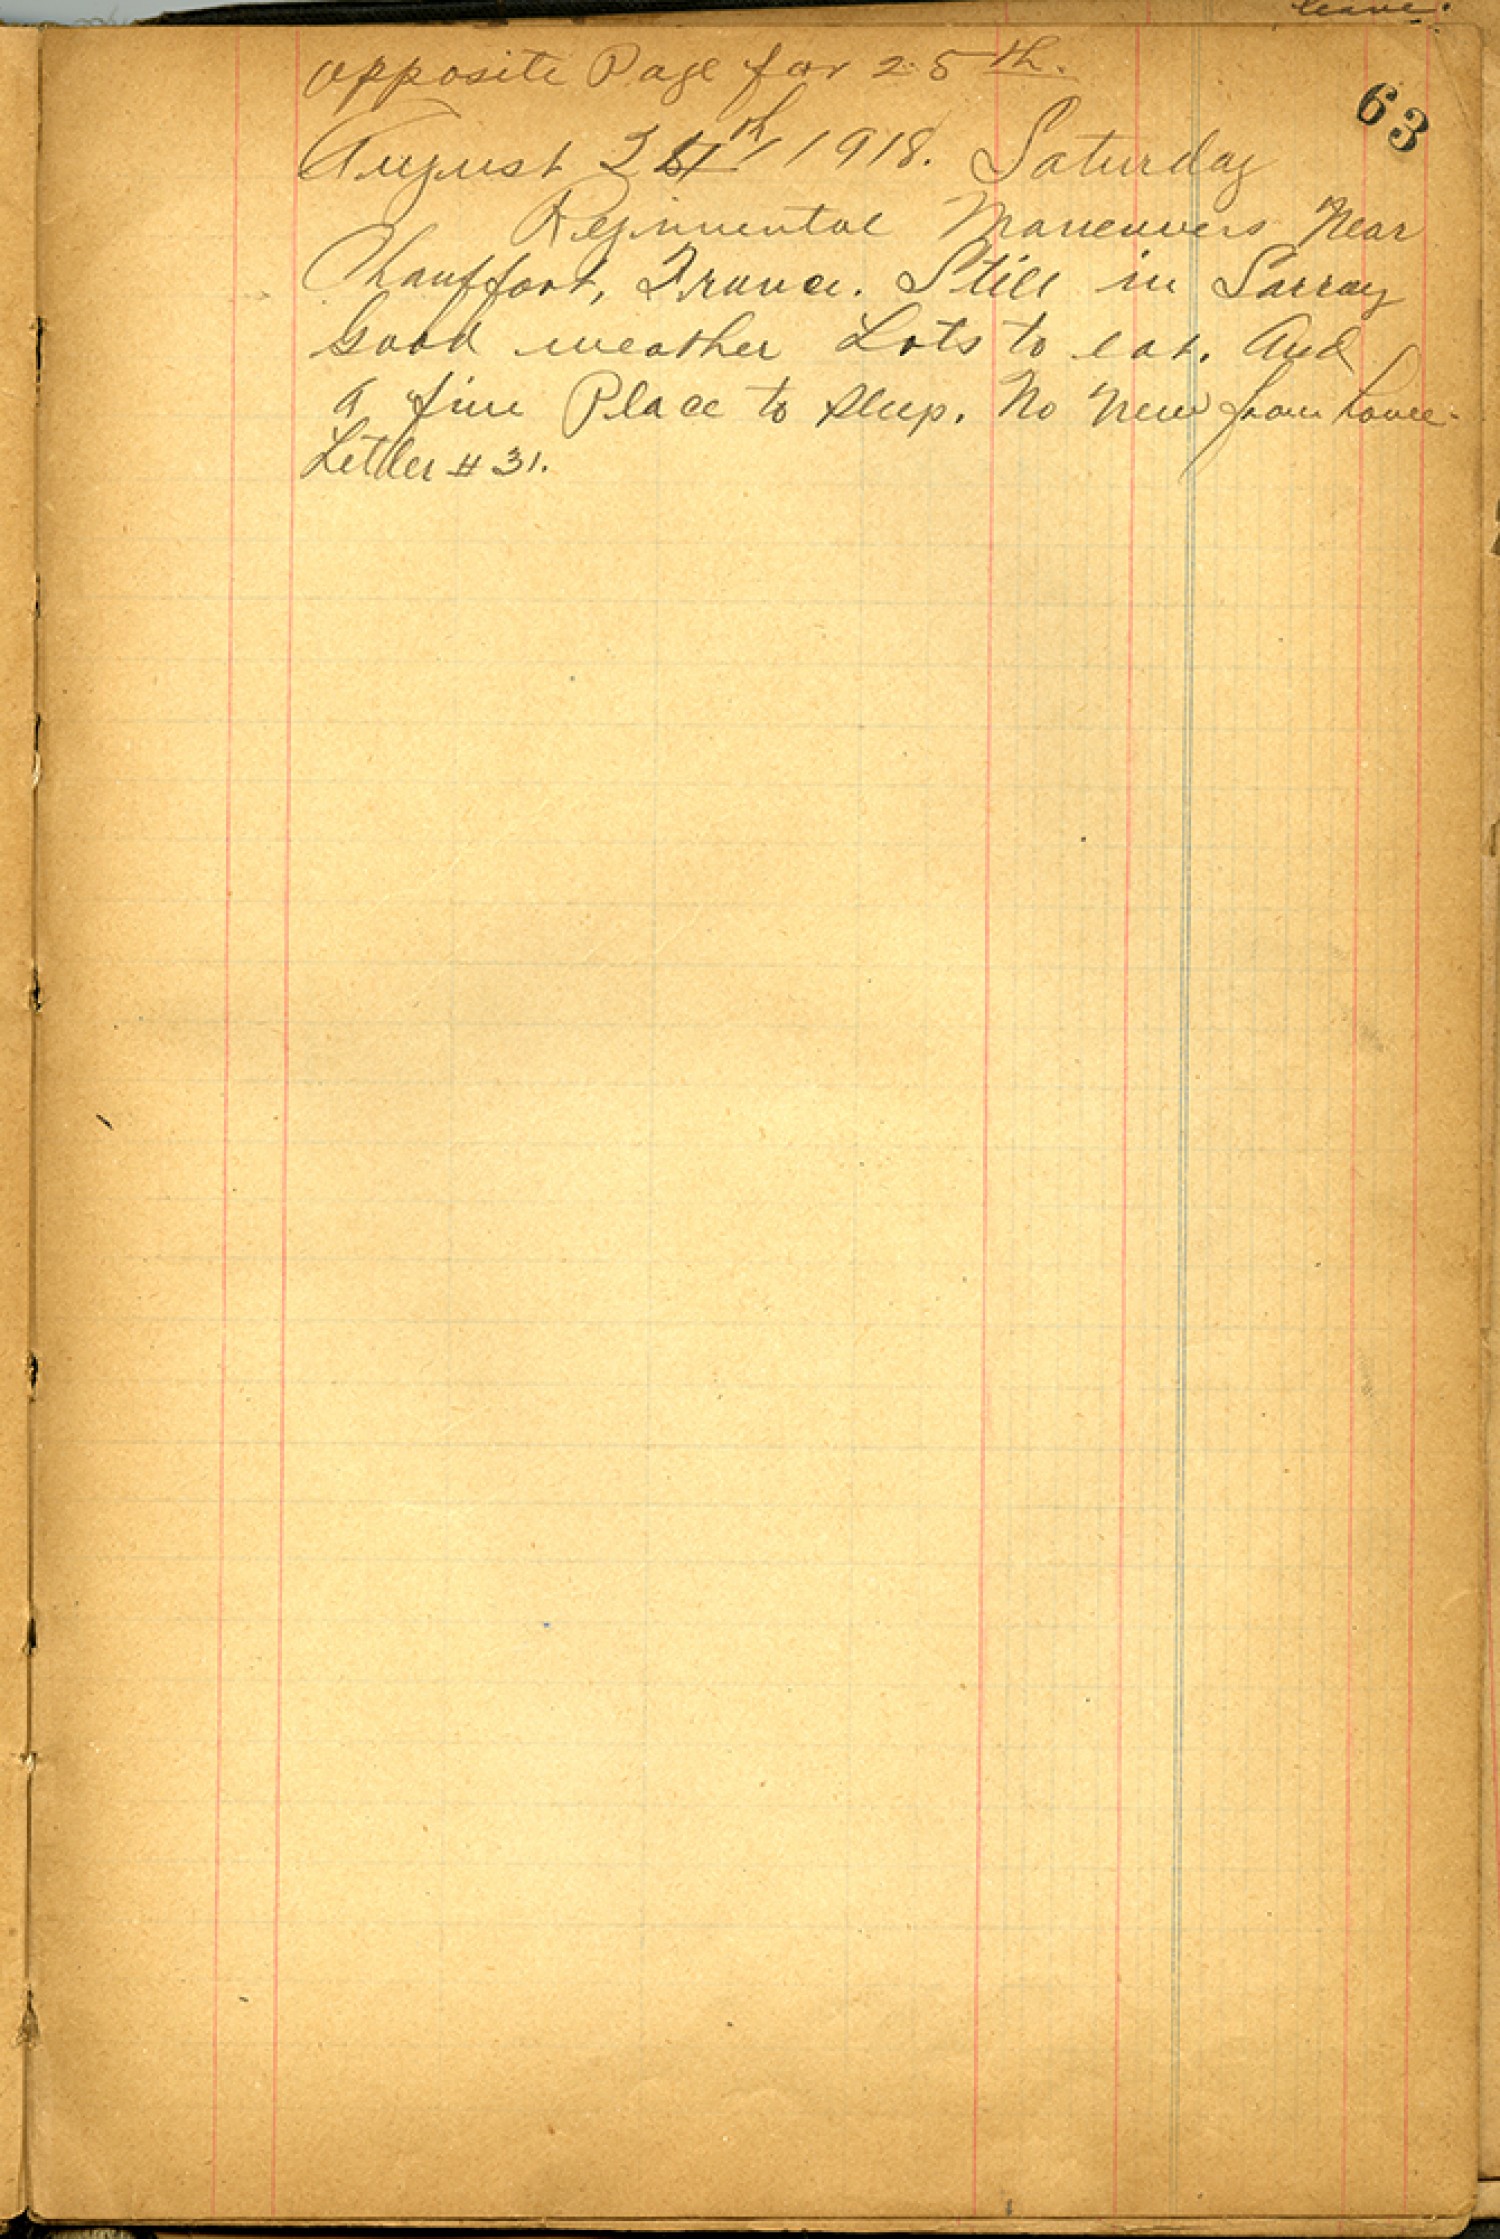 leave.
63
opposite Page for 25th.
August 24th 1918. Saturday
Regimental Maneuvers Near
Chauffort, France. Still in Sarray
Good weather Lots to eat. And
a fine Place to sleep. No New from home.
Letter # 31.